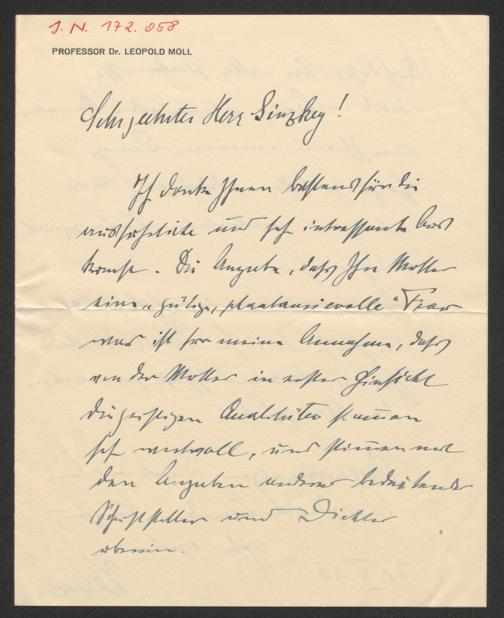 I. N. 172.058
PROFESSOR Dr. LEOPOLD MOLL
Sehr geehrter Herr Ginzkey!
Ich danke Ihnen bestens für die
ausführliche und sehr interessante Aus
kunft. Die Angabe, dass Ihre Mutter
eine "gütige, phantasievolle" Frau
war ist für meine Annahme, dass
von der Mutter in erster Hinsicht
die geistigen Qualitäten stammen
sehr wertvoll, und stimmt mit
den Angaben anderer bedeutender
Schriftsteller und Dichter
überein.